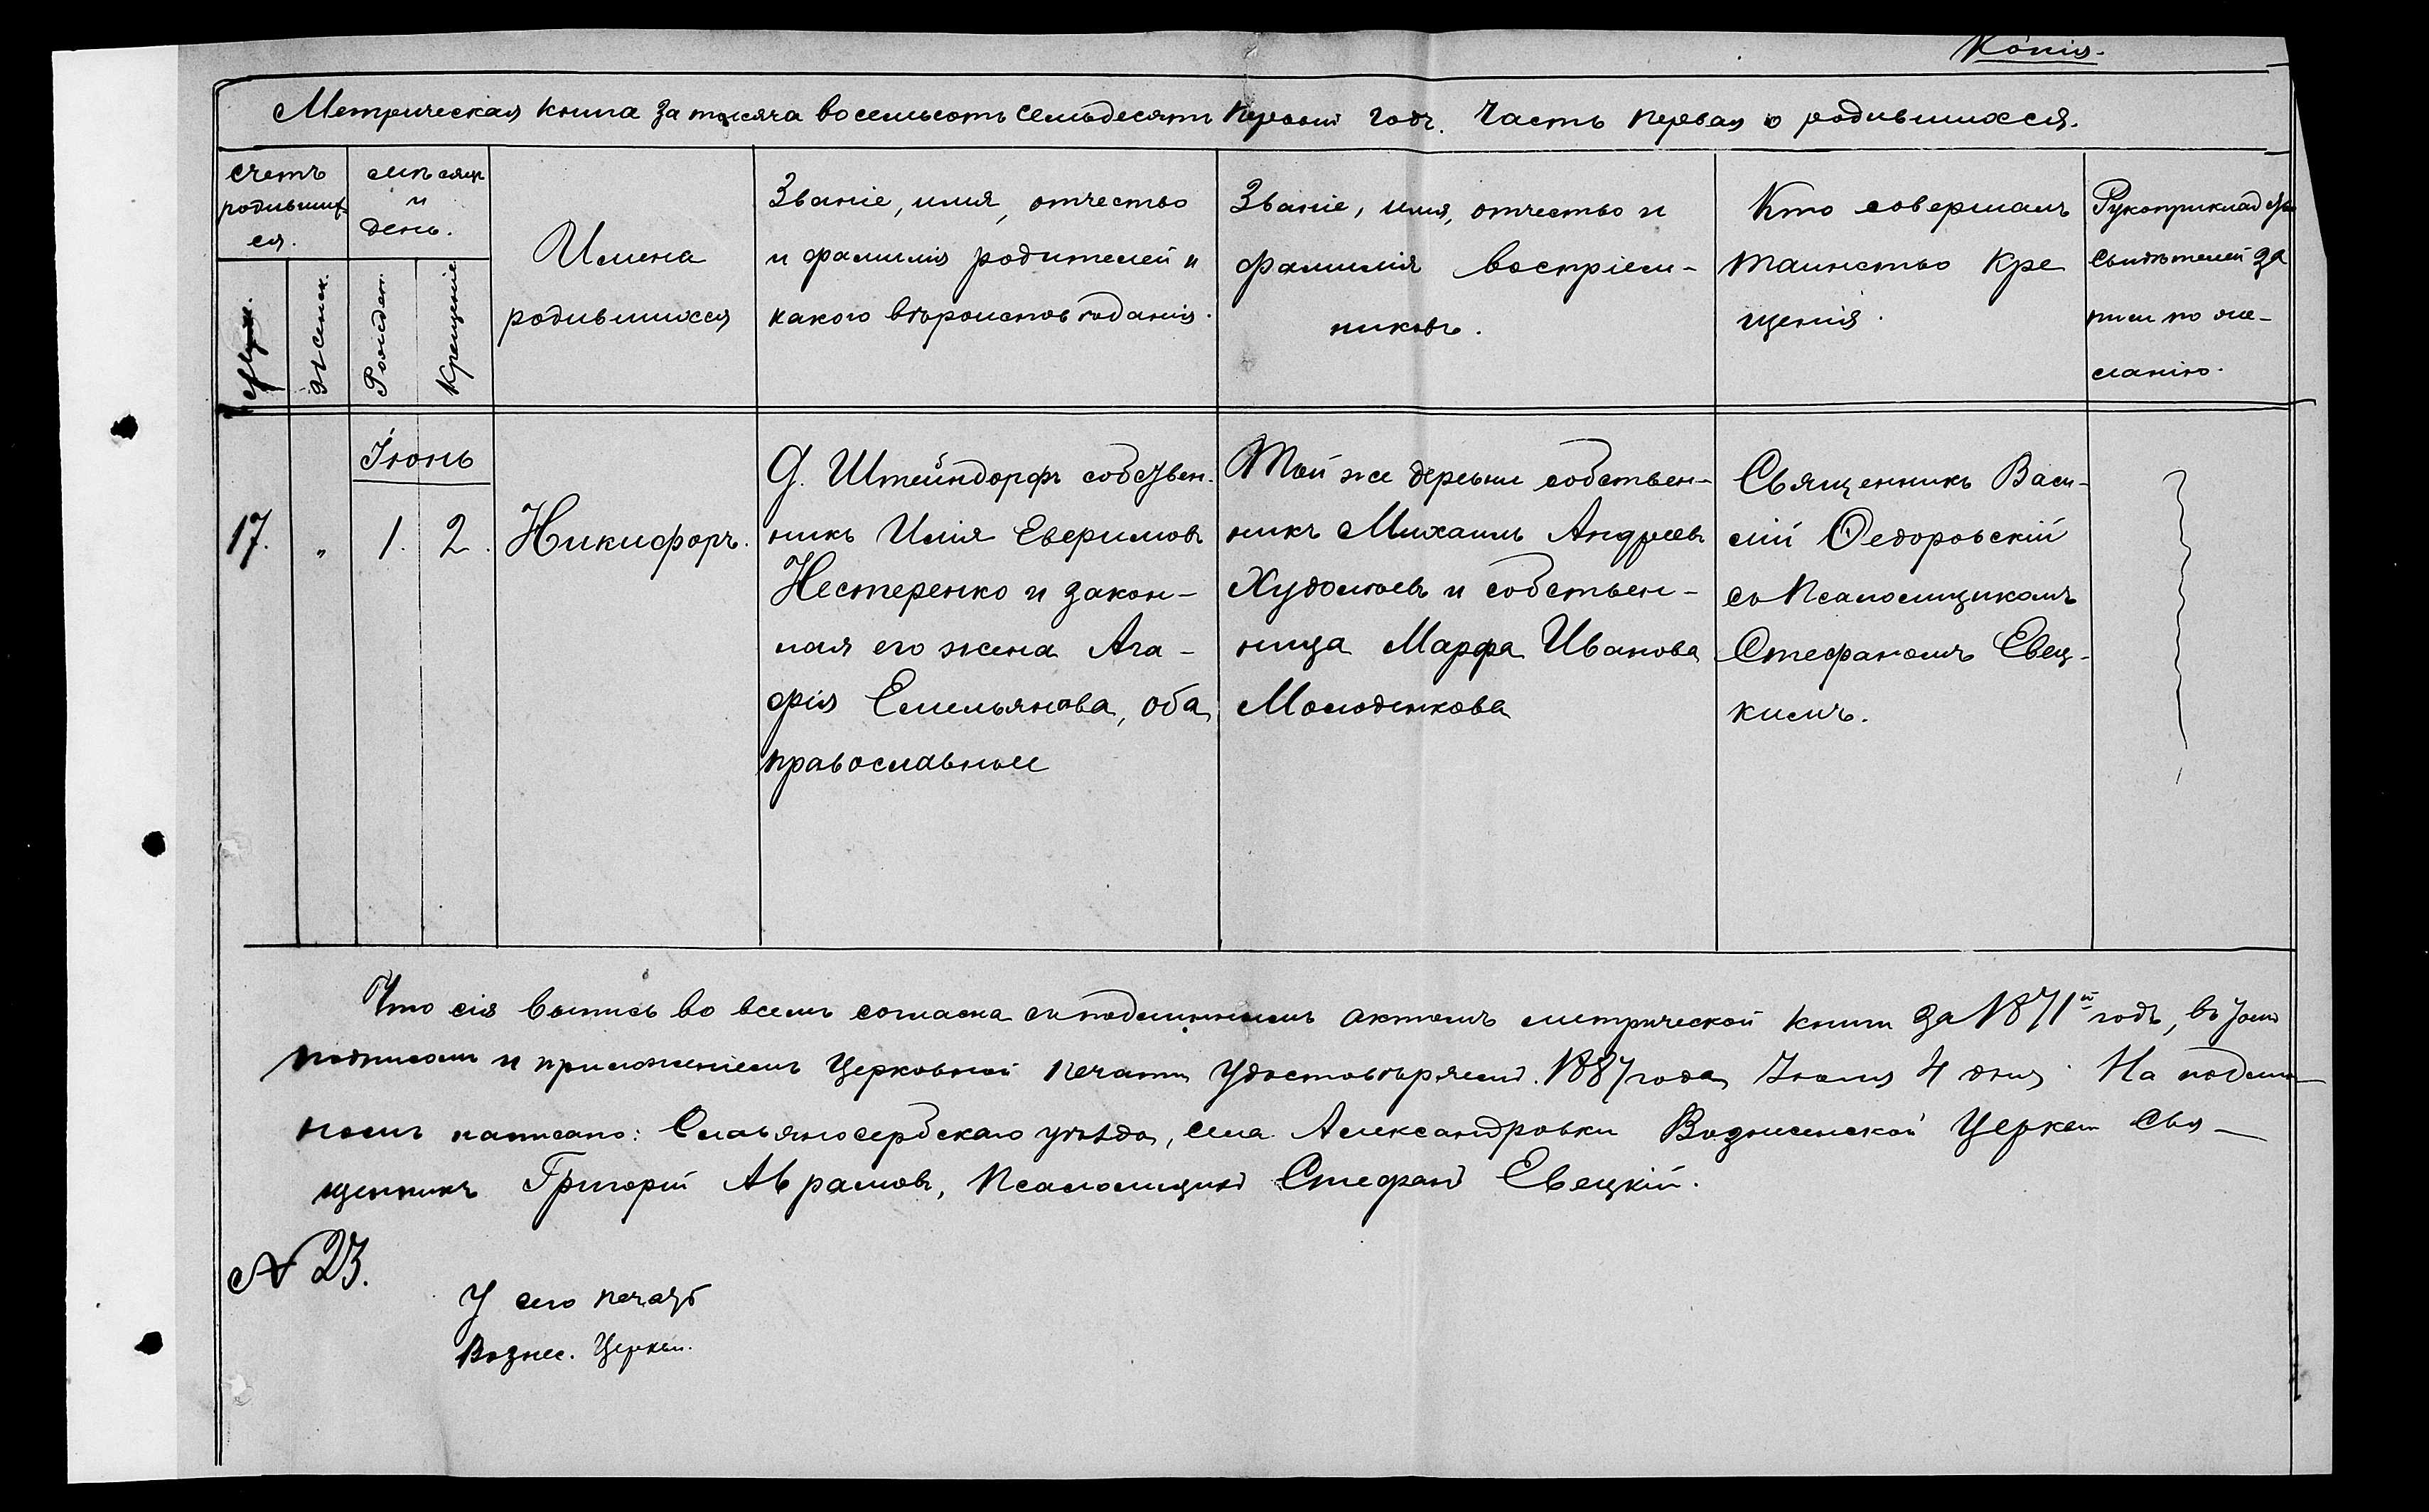 Копія.
Метрическая книга за тысяча восемьсотъ семьдесятъ первый годъ. Часть первая о родившихся.
Счетъ
родивших-
ся.
Муж.
Женск.
мѣсяцъ
и
день.
Рожден.
Крещеніе
Имена
родившихся
Званіе, имя, отчество
и фамилія родителей и
какого вѣроисповѣданія.
Званіе, имя, отчество и
фамилія воспріем-
никовъ.
Кто совершалъ
таинство кре
щенія.
Рукоприкладство
свидѣтелей за
писи по же-
ланію.
Іюнь
17.
"
1.
2.
Никифоръ.
Д. Штейндорфъ собствен.
никъ Илія Евфимовъ
Нестеренко и закон-
ная его жена Ага-
фія Емельянова, оба
православные
Той же деревни собствен-
никъ Михаилъ Андреевъ
Худолѣевъ и собствен-
ница Марфа Иванова
Молоденкова
Священникъ Васи-
лій Ѳедоровскій
съ Псаломщикомъ
Стефаномъ Евец-
кимъ.
Что сія выпись во всемъ согласна съ подлиннымъ актомъ метрической книги за 1871й годъ, въ томъ
подписомъ и приложеніемъ Церковной печати удостовѣряемъ. 1887 года Іюля 4 дня. На подлин-
номъ написано: Славяносербскаго уѣзда, села Александровки Вознесенской Церкви Свя-
щенникъ Григорій Аврамовъ, Псаломщикъ Стефанъ Евецкій.
№ 23.
У сего печать
Вознес. Церкви.